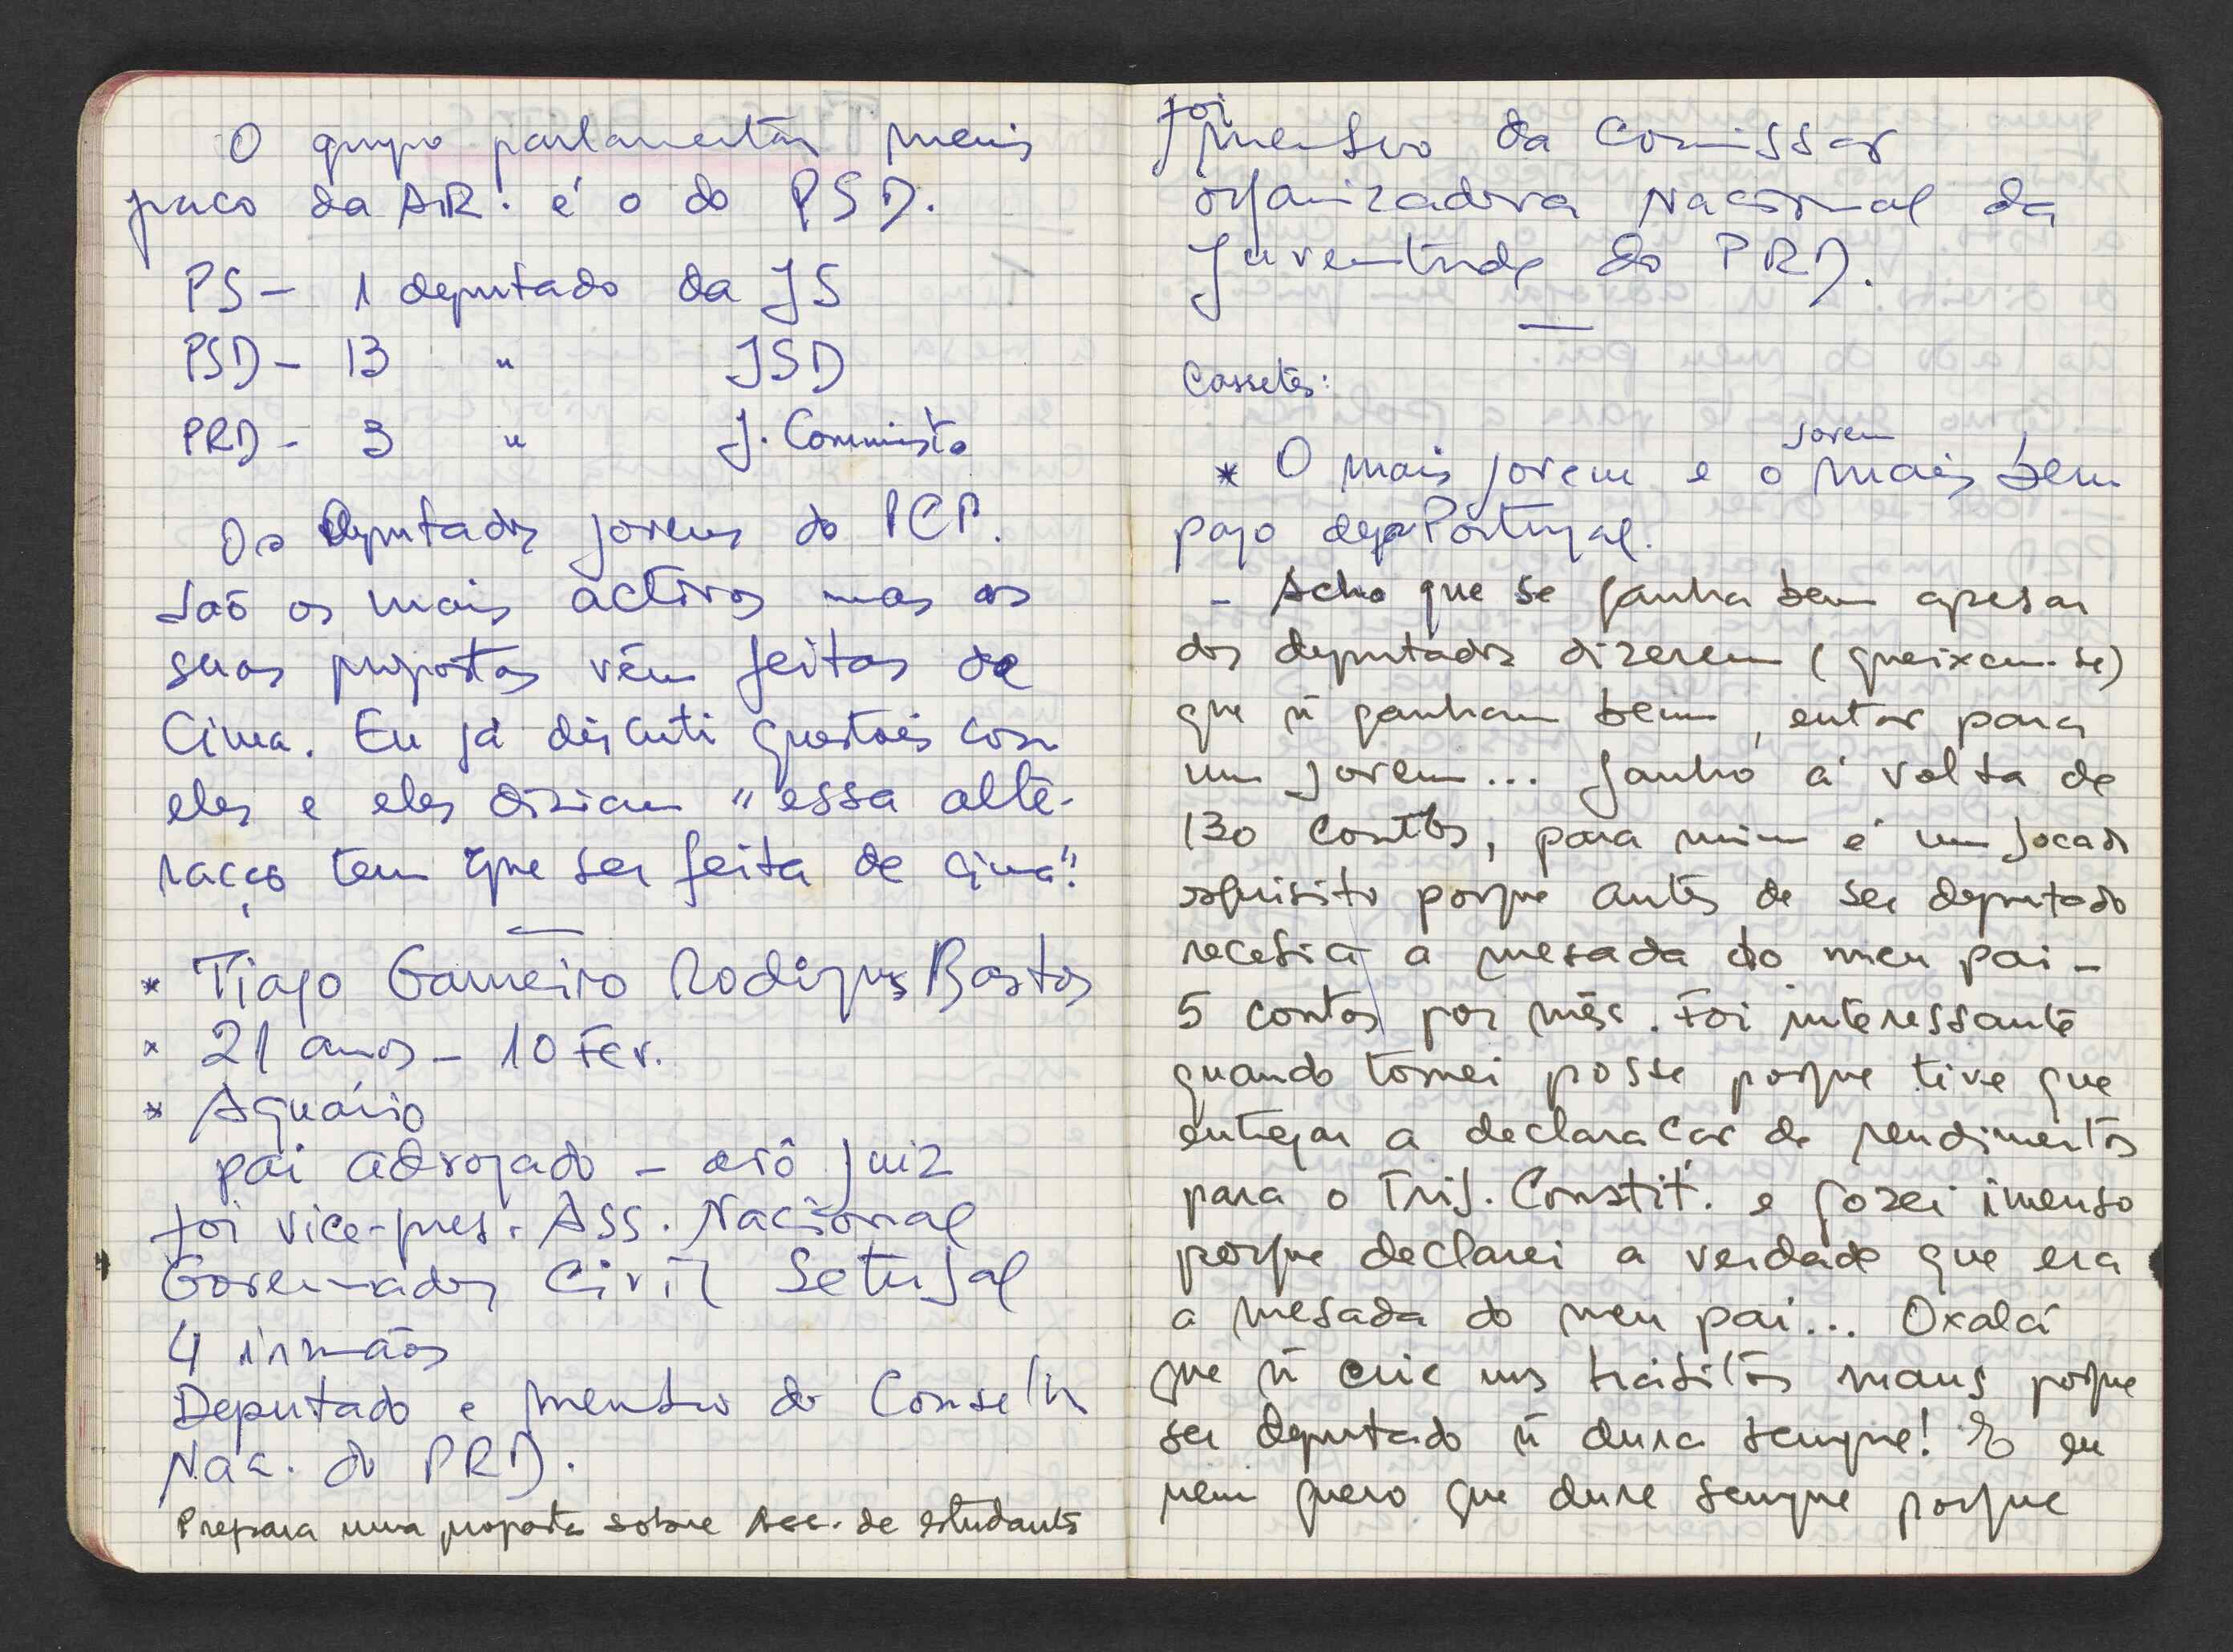 O grupo parlamentar mais
fraco da A.R. é o do PSD.
PS - 1 deputado da JS
PSD - 13 " JSD
PRD - 3 " J. Comunista
Os Deputados jovens do PCP.
são os mais activos mas as
suas propostas vêm feitas de
cima. Eu já discuti questões com
eles e eles diziam "essa alte-
ração tem que ser feita de cima".
* Tiago Gameiro Rodrigues Bastos
* 21 anos - 10 Fev.
* Aquário
pai advogado - avô juiz
foi vice-pres. Ass. Nacional
Governador Civil Setubal
4 irmãos
Deputado e membro do Conselho
Nac. do PRD.
Prepara uma proposta sobre Ass. de estudantes
foi
membro da Comissão
organizadora Nacional da
Juventude do PRD.
Cassetes:
jovem
* O mais jovem e o mais bem
pago de Portugal.
- Acho que se ganha bem apesar
dos deputados dizerem (queixam-se)
que ñ ganham bem, então para
um jovem... Ganho á volta de
130 contos, para mim é um bocado
esquisito porque antes de ser deputado
recebia a mesada do meu pai -
5 contos por mês. Foi interessante
quando tomei posse porque tive que
entregar a declaração de rendimentos
para o Trib. Constit. e gozei imenso
porque declarei a verdade que era
a mesada do meu pai... Oxalá
que ñ crie uns habitos maus porque
ser deputado ñ dura sempre! E eu
nem quero que dure sempre porque